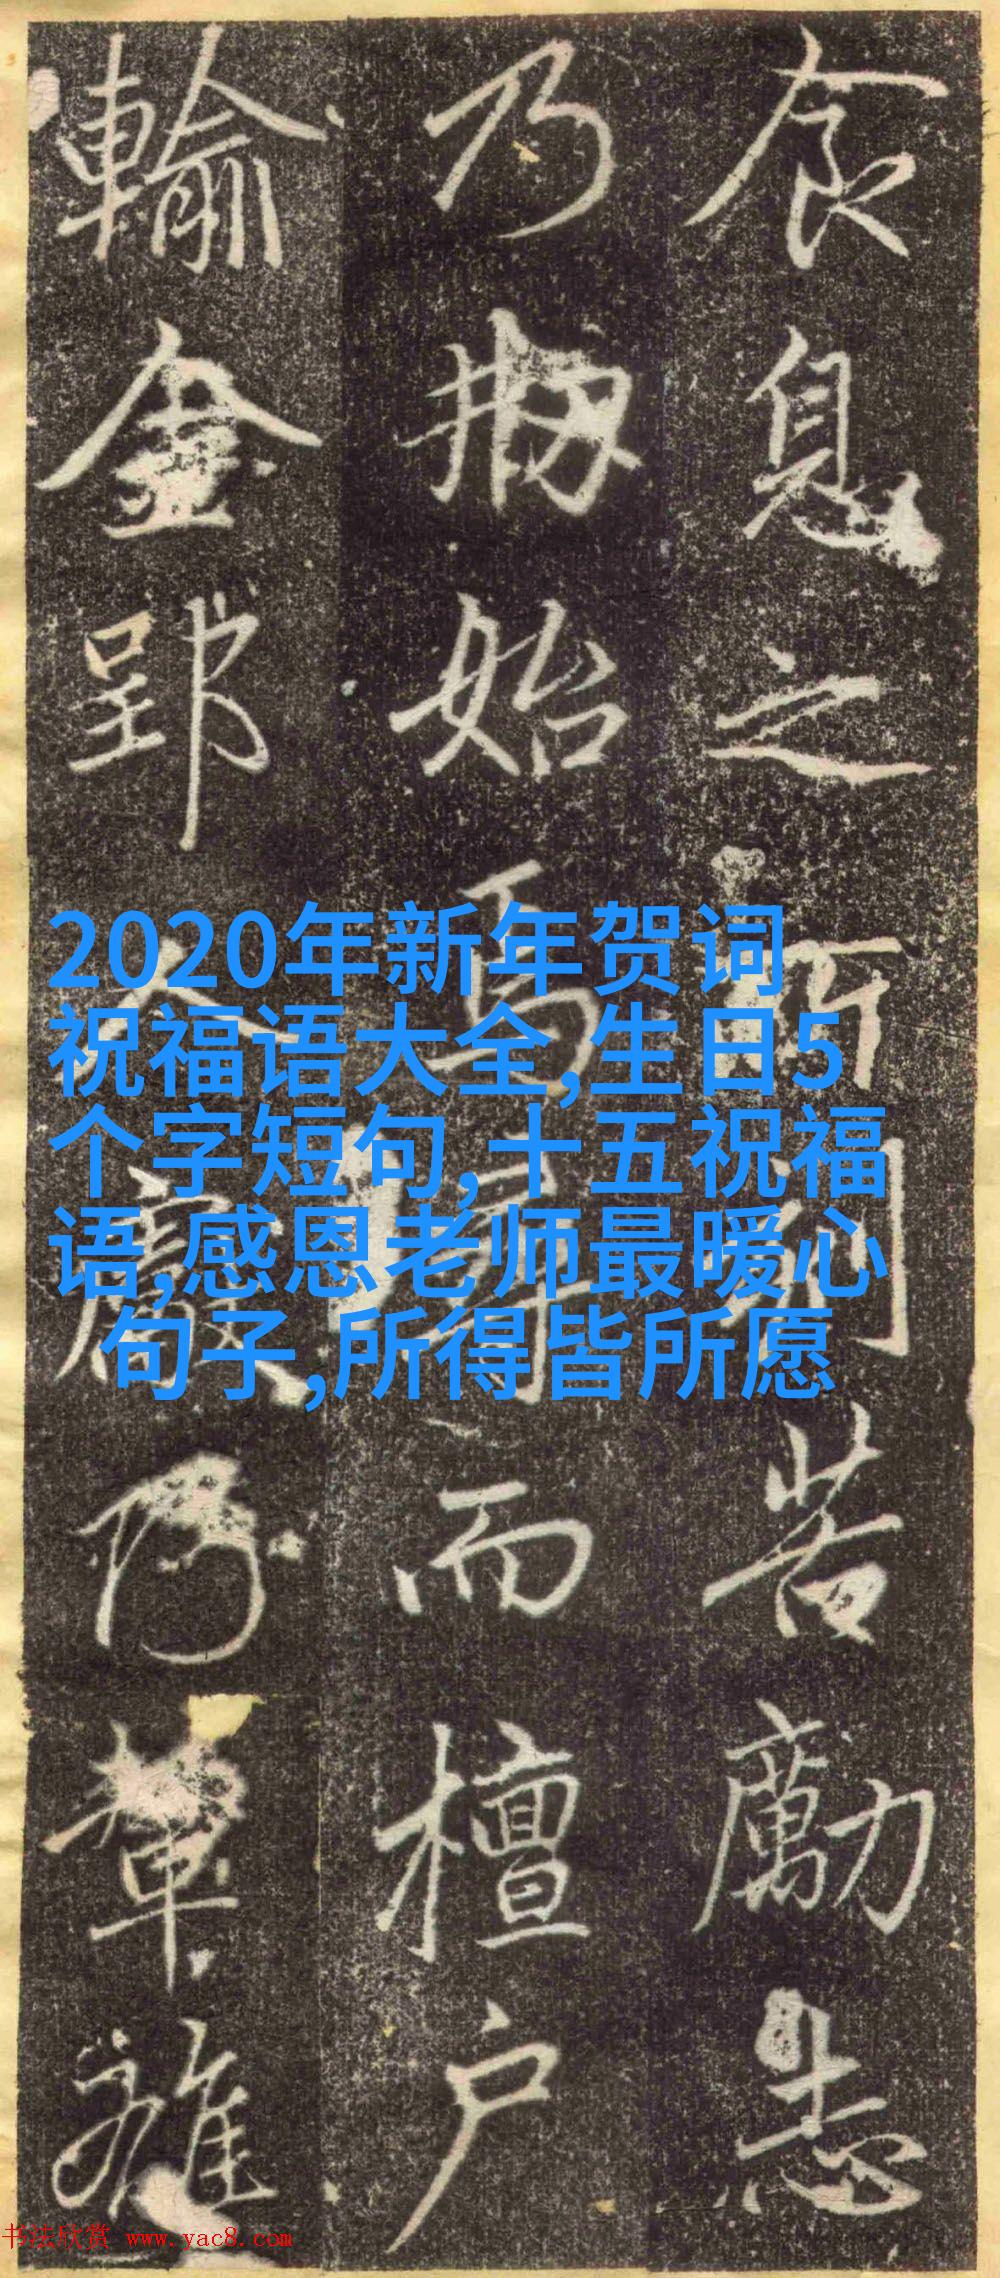 食息之所刻苦勵志
乃剏始焉尋而檀户
輸金郢人廢乃輦雖
2020年新年贺词
祝福语大全,生日5
个字短句,十五祝福
语,感恩老师最暖心
句子,所得皆所愿
书法欣赏 www.yac8.com